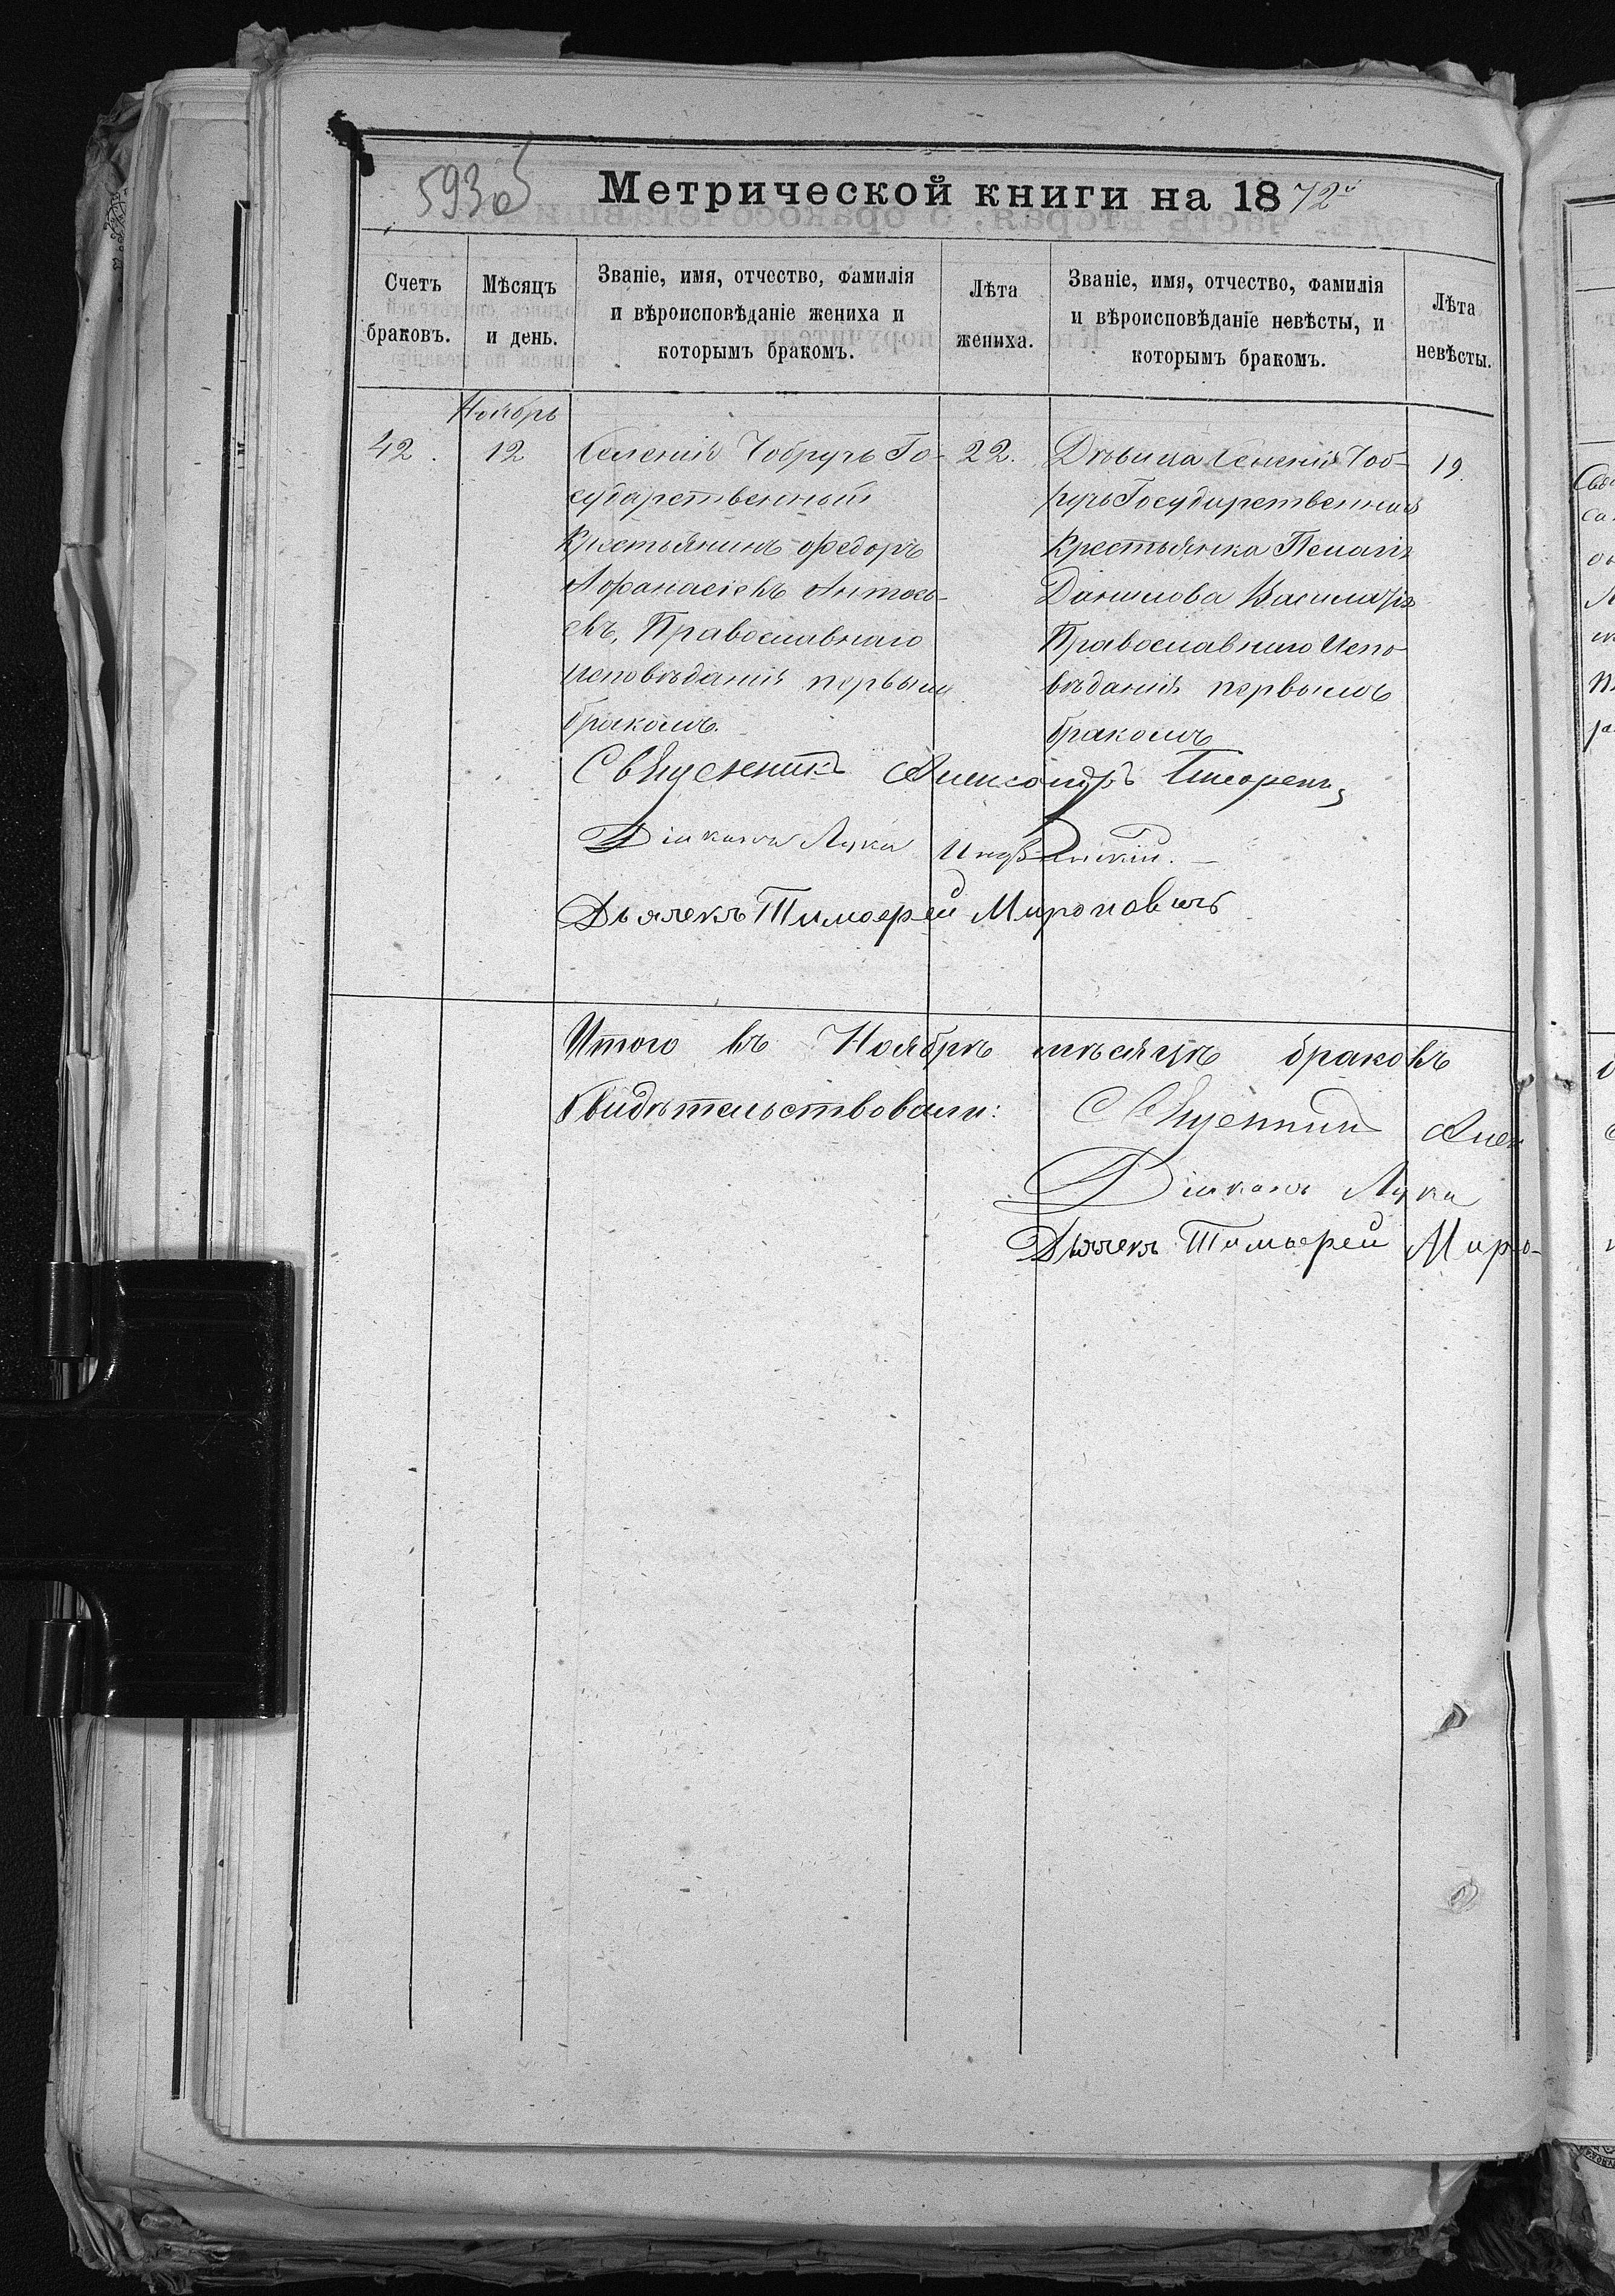 593об
Метрической книги на 1872й
Счетъ браковъ.
Мѣсяцъ и день.
Званіе, имя, отчество, фамилія и вѣроисповѣданіе жениха и которымъ бракомъ.
Лѣта жениха.
Званіе, имя, отчество, фамилія и вѣроисповѣданіе невѣсты, и которымъ бракомъ.
Лѣта невѣсты.
Ноябрь
42.
12
Селенія Чобручъ Го-
сударственный
Крестьянинъ Федоръ
Афанасіевъ Антось-
евъ, Православнаго
исповѣданія первымъ
бракомъ.
22.
Дѣвица Селенія Чоб-
ручъ Государственная
Крестьянка Пелагія
Данилова
Православнаго Испо-
вѣданія первымъ
бракомъ
19.
Священникъ Александръ
Діаконъ Лука
Дьячекъ Тимофей Мироновичъ
Итого въ Ноябрѣ мѣсяцѣ браковъ
Свидѣтельствовали: Священник Алек
Діаконъ Лука
Дьячекъ Тимофей Миро-